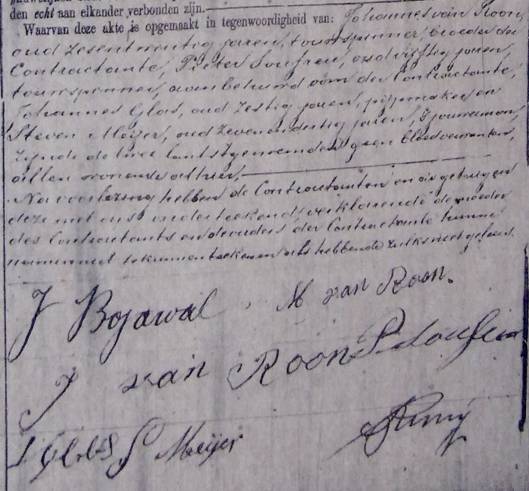 den echt aan elkander verbonden zijn.
Waarvan deze akte is opgemaakt in tegenwoordigheid van: Johannes van Roon,
oud zesentwintig jaren, touwspinner, broeder der
Contractante, Pieter oud vijftig jaren,
touwspinner, aanbehuwd oom der Contractante,
Johannes Glas, oud zestig jaren, pijpmaker en
Steven Meijer, oud zevenendertig jaren, sjouwerman,
zijnde de twee laatstgenoemden geen bloedverwanten,
allen wonende alhier.
Na voorlezing hebben de Contractanten en de getuigen
deze met ons onderteekend, verklarende de moeder
des Contractants en de ouders der Contractante hunne
namen niet te kunnen teekenen als hebbende zulks niet geleerd.
J Bojawal. M van Roon.
J van Roon
J Glas S Meijer